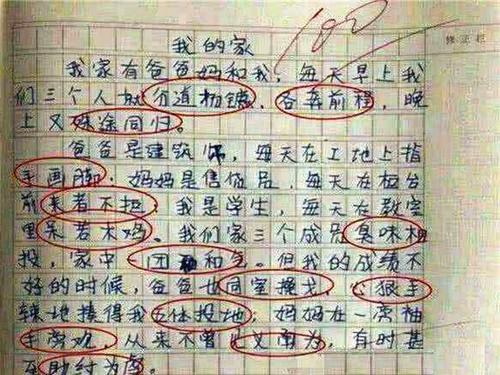 100
修正栏
我的家
我家有爸爸妈和我，每天早上我
们三个人就分道扬镳，各奔前程，晚
上又殊途同归。
爸爸是建筑师，每天在工地上指
手画脚；妈妈是售货员，每天在柜台
前来者不拒，我是学生，每天在教室
里呆若木鸡。我们家三个成员臭味相
投，家中一团和气。但我的成绩不
好的时候，爸爸也同室操戈，心狠手
辣地揍得我五体投地；妈妈在一旁袖
手旁观，从来不曾见义勇为，有时甚
至助纣为虐